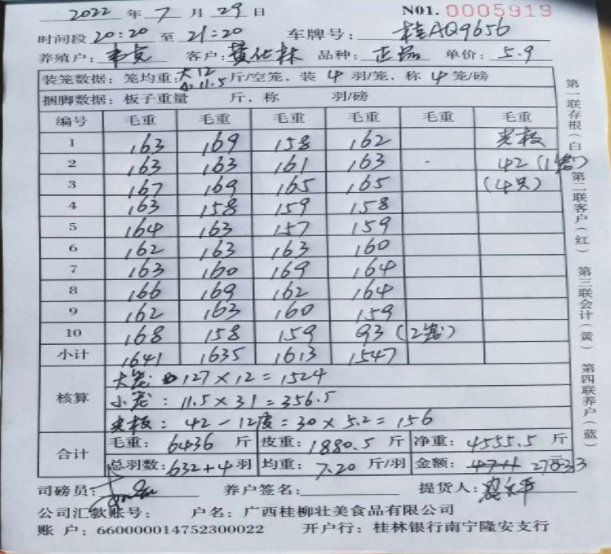 2022 年 7 月 29 日 NO1. 0005919
时间段 20:20 至 21:20 车牌号: 桂AQ9656
养殖户: 韦 客户: 黄仕林 品种: 正 单价: 5.9
装笼数据: 笼均重: 大12 小11.5 斤/空笼, 装 4 羽/笼, 称 4 笼/磅
捆脚数据: 板子重量 斤, 称 羽/磅
编号 毛重 毛重 毛重 毛重 毛重 毛重
1 163 169 158 162
2 163 163 161 163 42 (1笼)
3 167 169 165 165 (4只)
4 163 158 159 158
5 164 163 157 159
6 162 163 163 160
7 163 160 169 164
8 166 169 162 164
9 162 163 160 159
10 168 158 159 93 (2笼)
小计 1641 1635 1613 1547
核算
大笼 127×12=1524
小笼: 11.5×31=356.5
: 42-12皮=30×5.2=156
合计
毛重: 6436 斤 皮重: 1880.5 斤 净重: 4555.5 斤
总羽数: 632+4 羽 均重: 7.20 斤/羽 金额: 27033
司磅员: 养户签名: 提货人:
公司汇款账号: 户名: 广西桂柳壮美食品有限公司
账 户: 660000014752300022 开户行: 桂林银行南宁隆安支行
第一联存根(白) 第二联客户(红) 第三联会计(黄) 第四联养户(蓝)